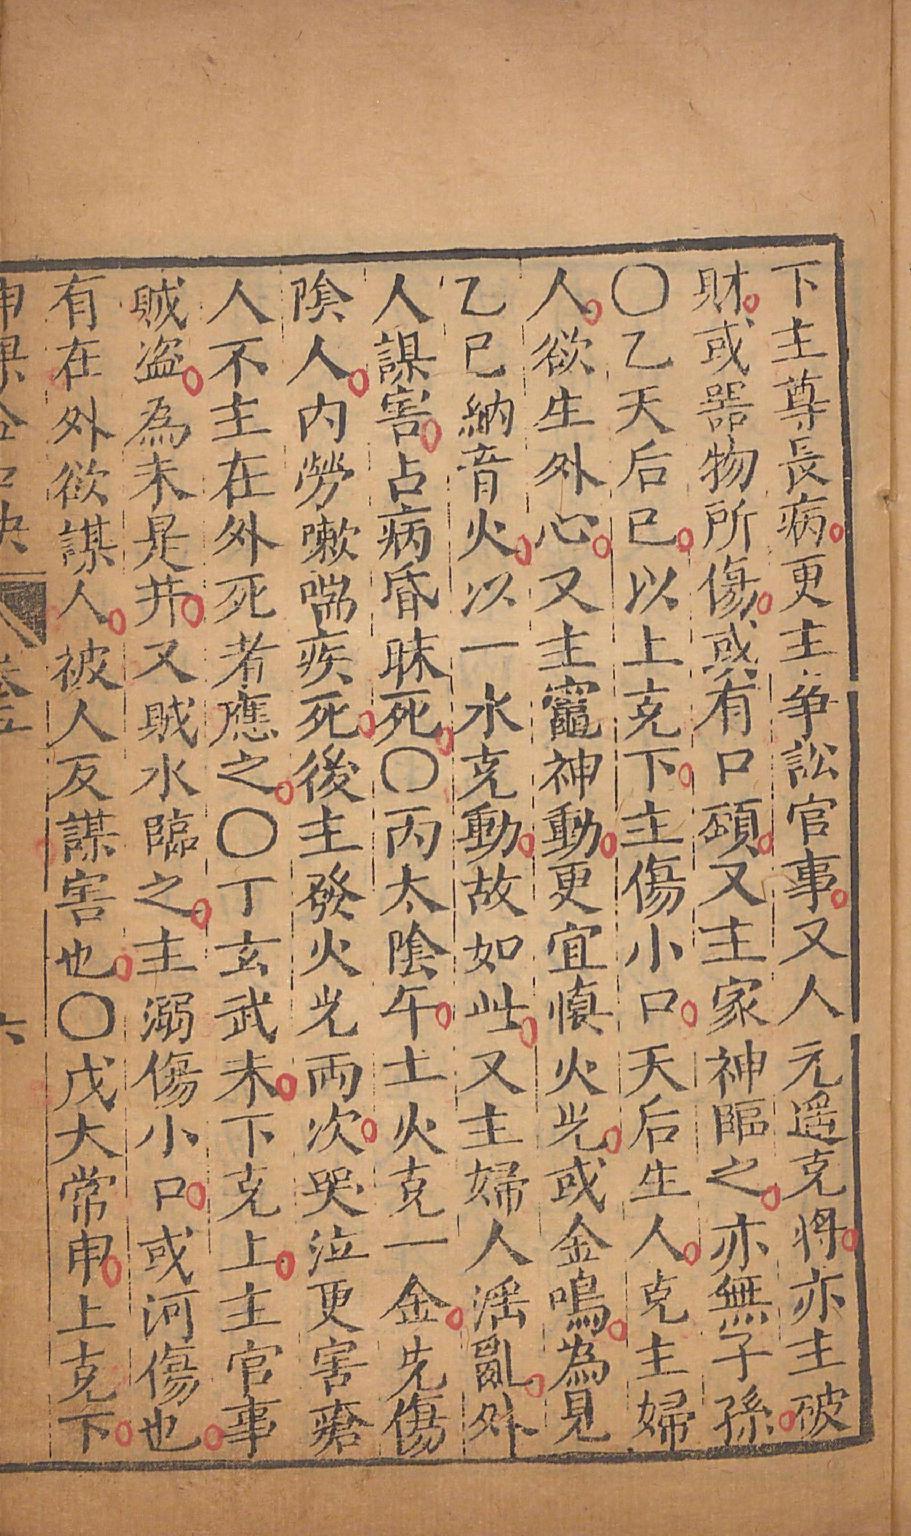 下主尊長病更主争訟官事又人元遥克將亦主破
財或器物所傷或有口頟又主家神臨之亦無子孫
〇乙天后巳以上克下主傷小口天后生人克主婦
人欲生外心又主竈神動更宜慎火光或金鳴為見
乙巳納音火以一水克動故如此又主婦人滛亂外
人謀害占病昏昧死〇丙太陰午土火克一金先傷
陰人内勞嗽喘疾死後主發火光兩次哭泣更害瘡
人不主在外死者應之〇丁玄武未下克上主官事
賊盗為未是井又賊水臨之主溺傷小口或河傷也
有在外欲謀人被人反謀害也〇戊大常申上克下
卷五
六